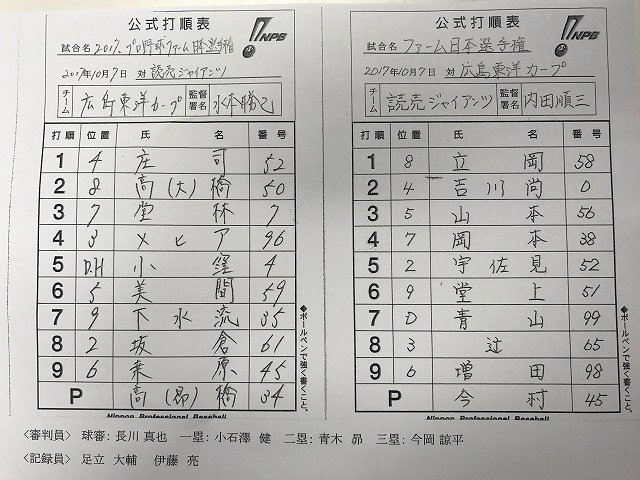 公式打順表
NPB
試合名 2017.プロ野球ファーム日本選手権
2017年10月7日 対 読売ジャイアンツ
チーム 広島東洋カープ 監督署名 水本勝己
打順 位置 氏 名 番号
1 4 庄司 52
2 8 高(大)橋 50
3 7 堂林 7
4 3 メヒア 96
5 D.H 小窪 4
6 5 美間 59
7 9 下水流 35
8 2 坂倉 61
9 6 桒原 45
P 高(昴)橋 34
ボールペンで強く書くこと。
Nippon Professional Baseball
公式打順表
NPB
試合名 ファーム日本選手権
2017年10月7日 対 広島東洋カープ
チーム 読売ジャイアンツ 監督署名 内田順三
打順 位置 氏 名 番号
1 8 立岡 58
2 4 吉川尚 0
3 5 山本 56
4 7 岡本 38
5 2 宇佐見 52
6 9 堂上 51
7 D 青山 99
8 3 辻 65
9 6 増田 98
P 今村 45
ボールペンで強く書くこと。
Nippon Professional Baseball
<審判員> 球審: 長川 真也 一塁: 小石澤 健 二塁: 青木 昴 三塁: 今岡 諒平
<記録員> 足立 大輔 伊藤 亮